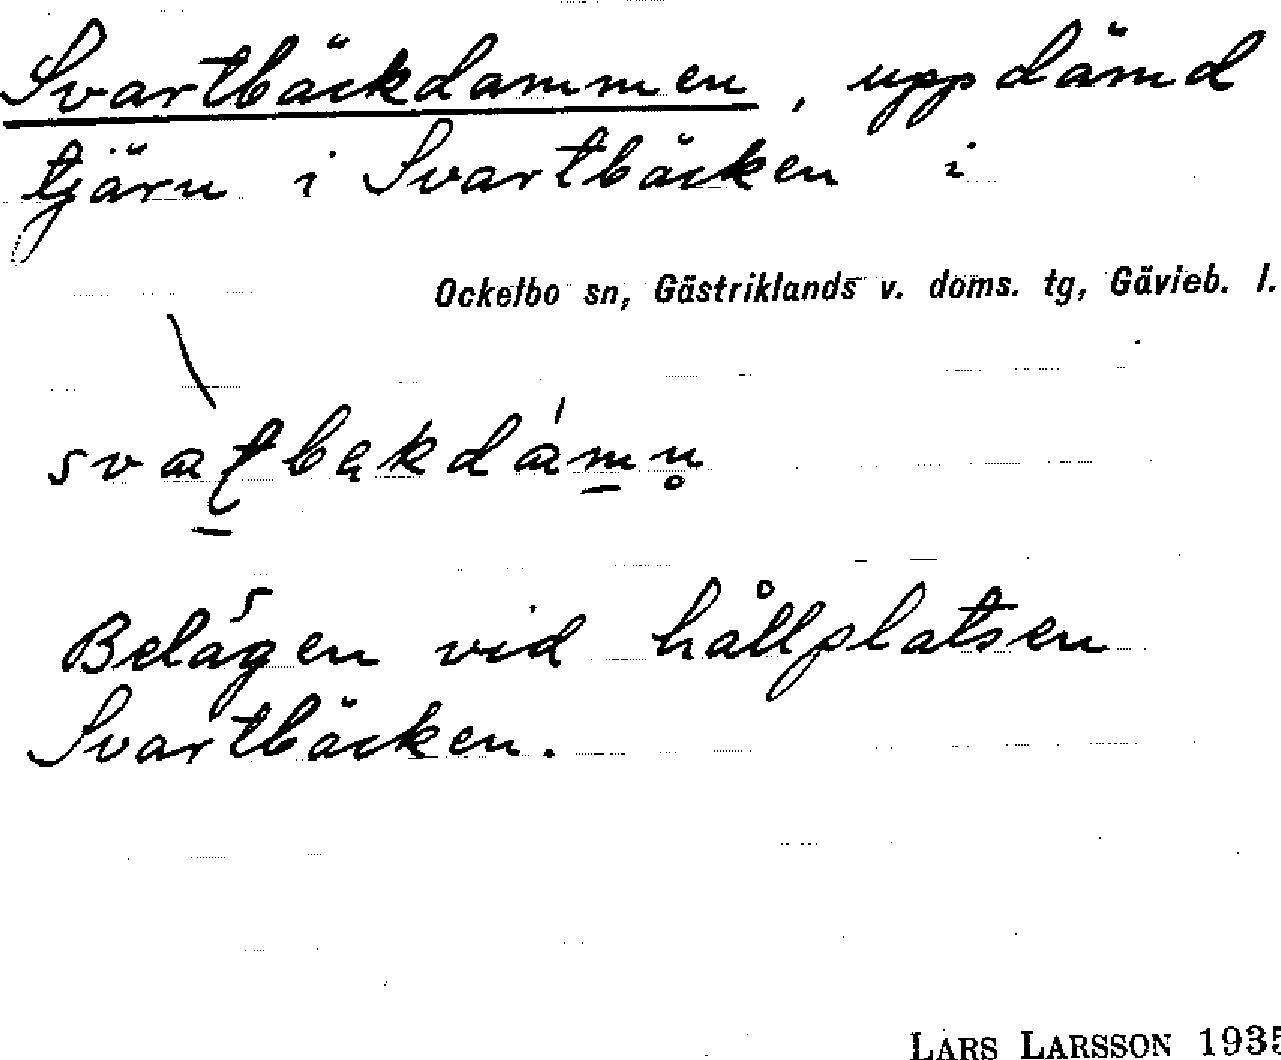 Svartbäckdammen, uppdämd
tjärn i Svartbäcken i
Ockelbo sn, Gästriklands v. doms. tg, Gävleb. l.
Belägen vid hållplatsen
Svartbäcken.
LARS LARSSON 1935